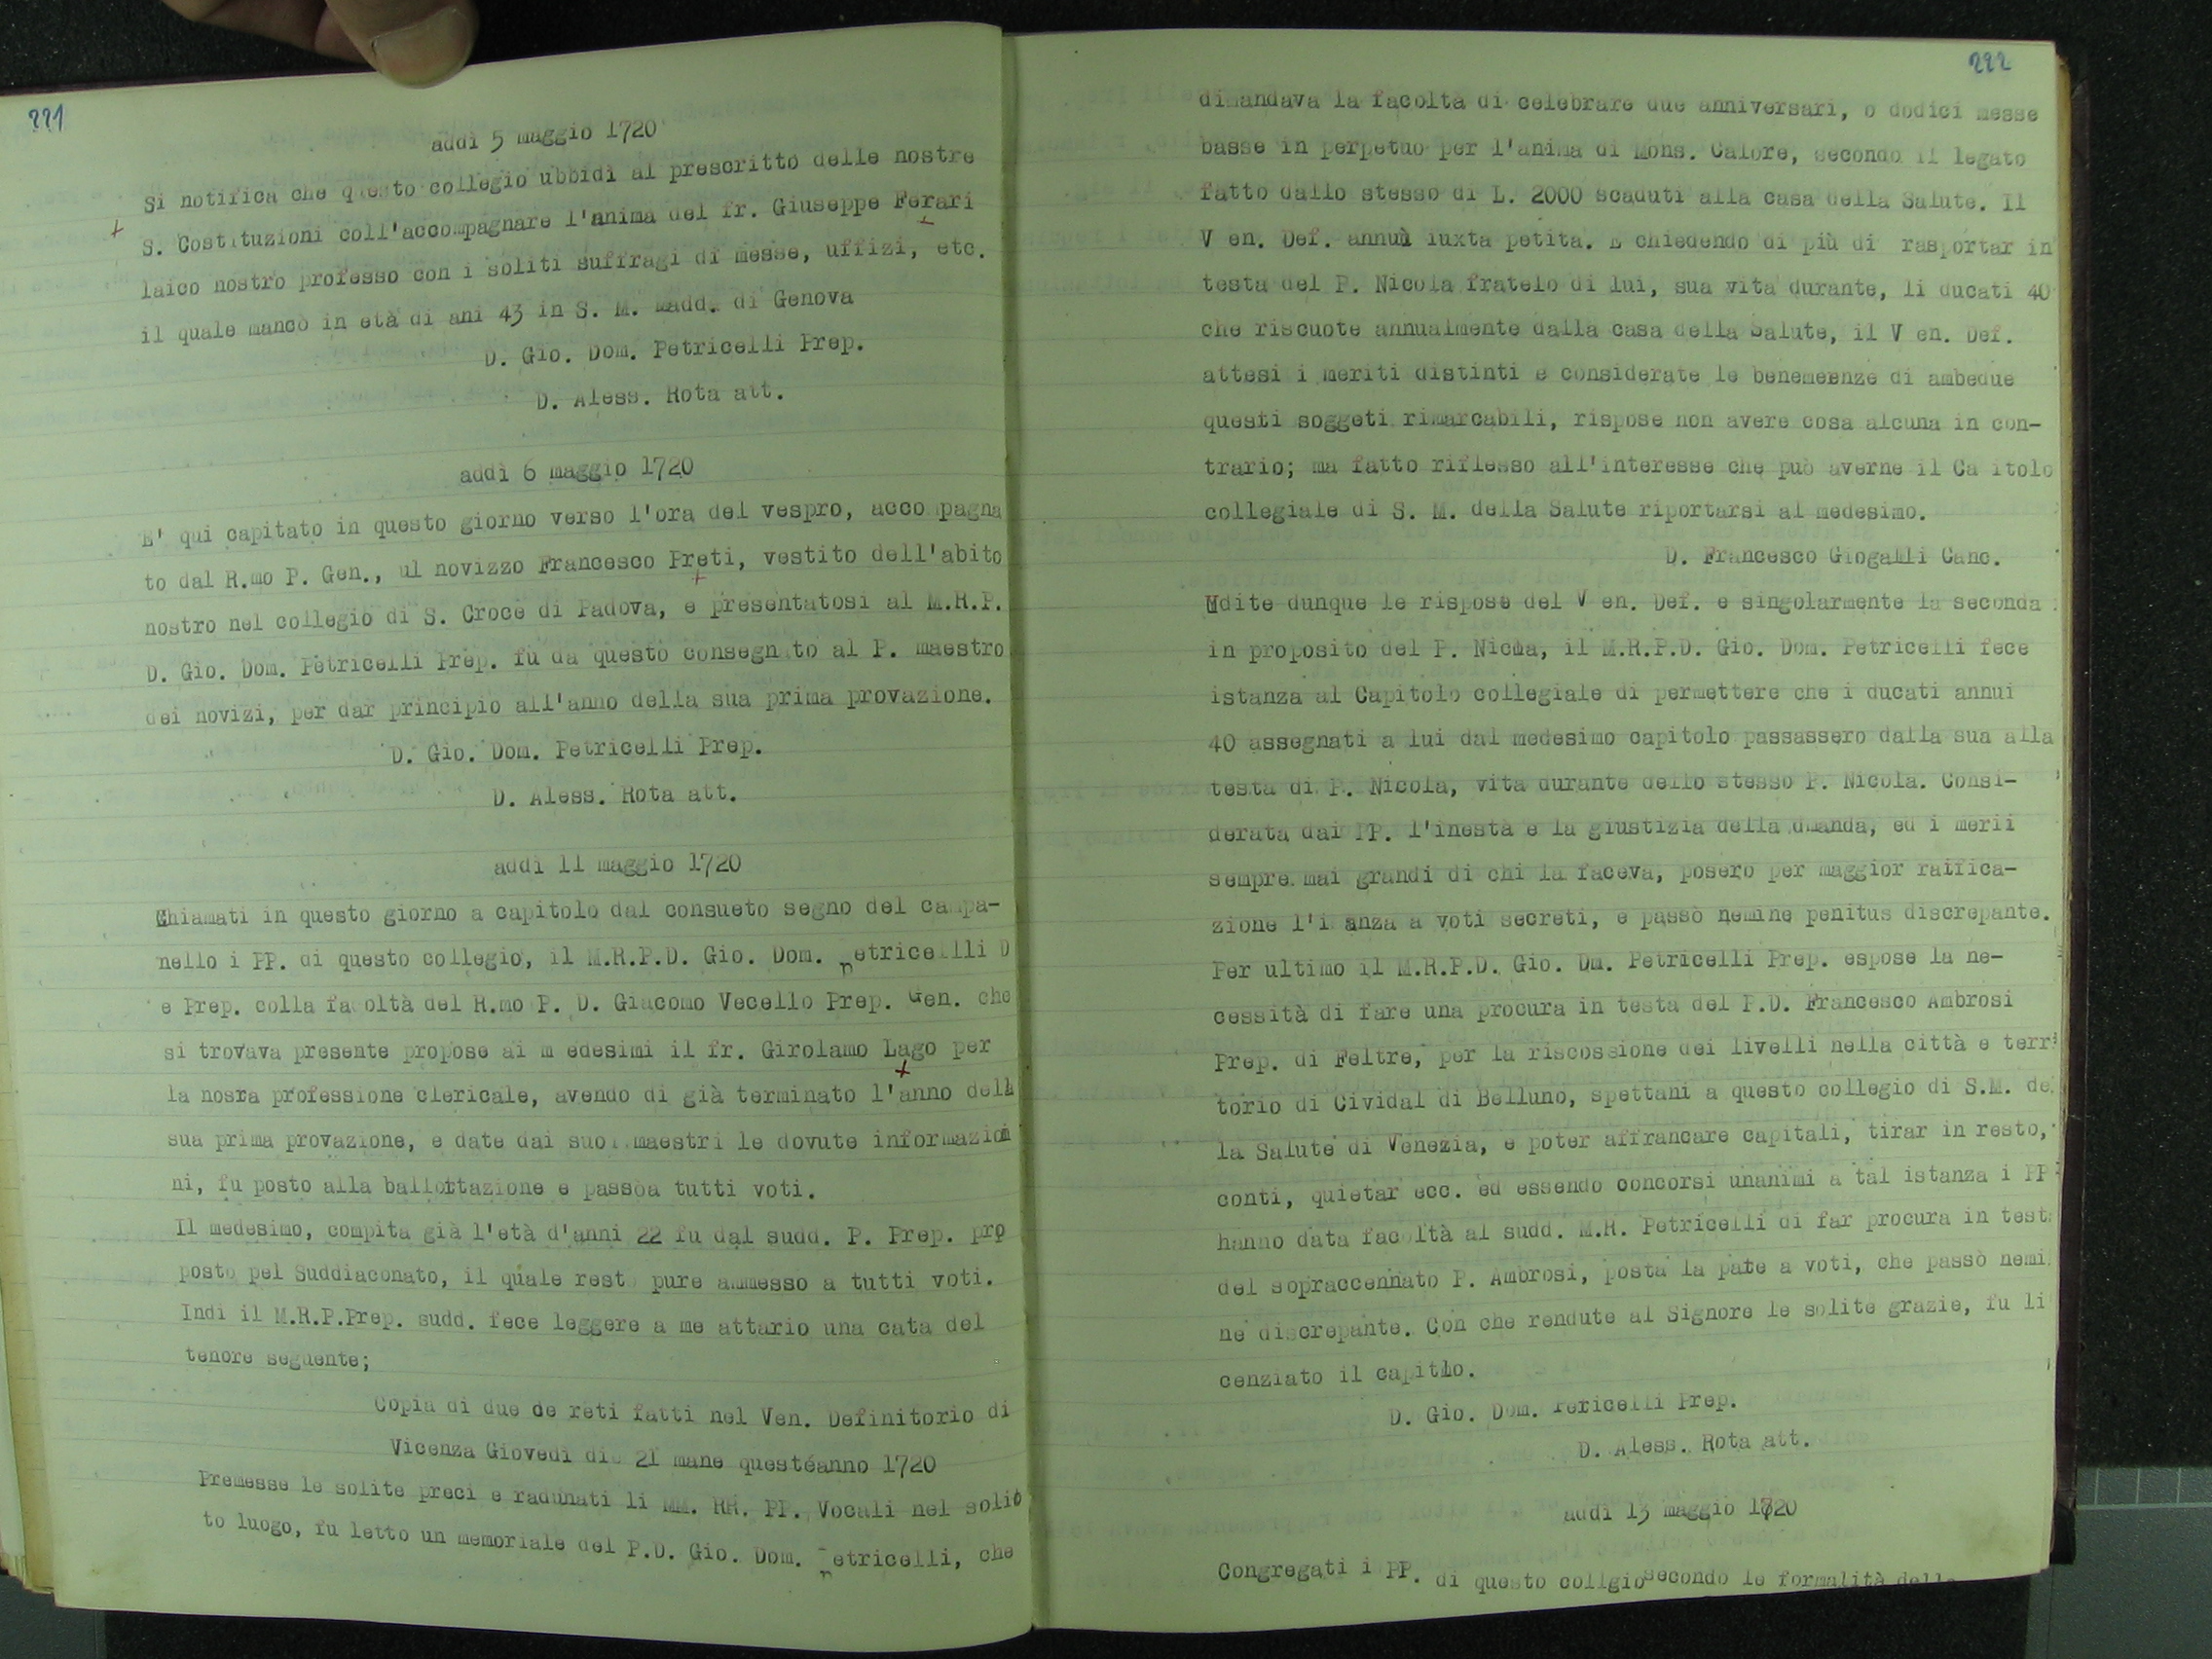 221
addì 5 maggio 1720
Si notifica che questo collegio ubbidì al prescritto delle nostre
S. Costituzioni coll'accompagnare l'anima del fr. Giuseppe Ferari
laico nostro professo con i soliti suffragi di messe, uffizi, etc.
il quale mancò in età di ani 43 in S. M. Madd. di Genova
D. Gio. Dom. Petricelli Prep.
D. Aless. Rota att.
addì 6 maggio 1720
E' qui capitato in questo giorno verso l'ora del vespro, acco pagna
to dal R.mo P. Gen., ul novizzo Francesco Preti, vestito dell'abito
nostro nel collegio di S. Croce di Padova, e presentatosi al M.R.P.
D. Gio. Dom. Petricelli Prep. fu da questo consegn to al P. maestro
dei novizi, per dar principio all'anno della sua prima provazione.
D. Gio. Dom. Petricelli Prep.
D. Aless. Rota att.
addì 11 maggio 1720
Chiamati in questo giorno a capitolo dal consueto segno del campa-
nello i PP. di questo collegio, il M.R.P.D. Gio. Dom. Petricellli D
e Prep. colla facoltà del R.mo P. D. Giacomo Vecello Prep. Gen. che
si trovava presente propose ai m edesimi il fr. Girolamo Lago per
la nosra professione clericale, avendo di già terminato l'anno della
sua prima provazione, e date dai suoi maestri le dovute informazioni
ni, fu posto alla ballottazione e passòa tutti voti.
Il medesimo, compita già l'età d'anni 22 fu dal sudd. P. Prep. pro
posto pel Suddiaconato, il quale rest pure ammesso a tutti voti.
Indi il M.R.P.Prep. sudd. fece leggere a me attario una cata del
tenore seguente;
Copia di due de reti fatti nel Ven. Definitorio di
Vicenza Giovedì di 21 mane questéanno 1720
Premesse le solite preci e radunati li MM. RR. PP. Vocali nel solito
to luogo, fu letto un memoriale del P.D. Gio. Dom. Petricelli, che
222
dimandava la facoltà di celebrare due anniversari, o dodici messe
basse in perpetuo per l'anima di Mons. Calore, secondo il legato
fatto dallo stesso di L. 2000 scaduti alla casa della Salute. Il
V en. Def. annuì iuxta petita. E chiedendo di più di rasportar in
testa del P. Nicola fratelo di lui, sua vita durante, li ducati 40
che riscuote annualmente dalla casa della Salute, il V en. Def.
attesi i meriti distinti e considerate le benemerenze di ambedue
questi soggeti rimarcabili, rispose non avere cosa alcuna in con-
trario; ma fatto riflesso all'interesse che può averne il Ca itolo
collegiale di S. M. della Salute riportarsi al medesimo.
D. Francesco Giogalli Canc.
Udite dunque le rispose del V en. Def. e singolarmente la seconda
in proposito del P. Nicola, il M.R.P.D. Gio. Dom. Petricelli fece
istanza al Capitolo collegiale di permettere che i ducati annui
40 assegnati a lui dal medesimo capitolo passassero dalla sua alla
testa di P. Nicola, vita durante dello stesso P. Nicola. Consi-
derata dai PP. l'inestà e la giustizia della dmanda, ed i merii
sempre mai grandi di chi la faceva, posero per maggior raifica-
zione l'i anza a voti secreti, e passò nemine penitus discrepante.
Per ultimo il M.R.P.D. Gio. Dm. Petricelli Prep. espose la ne-
cessità di fare una procura in testa del P.D. Francesco Ambrosi
Prep. di Feltre, per la riscossione dei livelli nella città e terri
torio di Cividal di Belluno, spettani a questo collegio di S.M. de
la Salute di Venezia, e poter affrancare capitali, tirar in resto,
conti, quietar ecc. ed essendo concorsi unanimi a tal istanza i PP
hanno data facoltà al sudd. M.R. Petricelli di far procura in test
del sopraccennato P. Ambrosi, posta la pate a voti, che passò nemi
ne discrepante. Con che rendute al Signore le solite grazie, fu li
cenziato il capitlo.
D. Gio. Dom. Petricelli Prep.
D. Aless. Rota att.
addì 13 maggio 1720
Congregati i PP. di questo collgio secondo le formalità delle